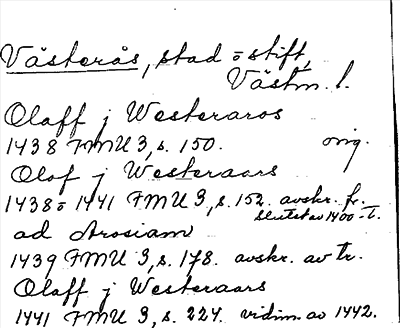 Västerås, stad o stift,
Västm. l.
Olaff j Westeraros
1438 FMU 3, s. 150. orig.
Olof j Westeraars
1438 o 1441 FMU 3, s. 152. avskr. fr.
slutet av 1400-t.
ad Arosiam
1439 FMU 3, s. 178. avskr. av tr.
Olaff j Westeraars
1441 FMU 3, s. 224. vidim. av 1442.